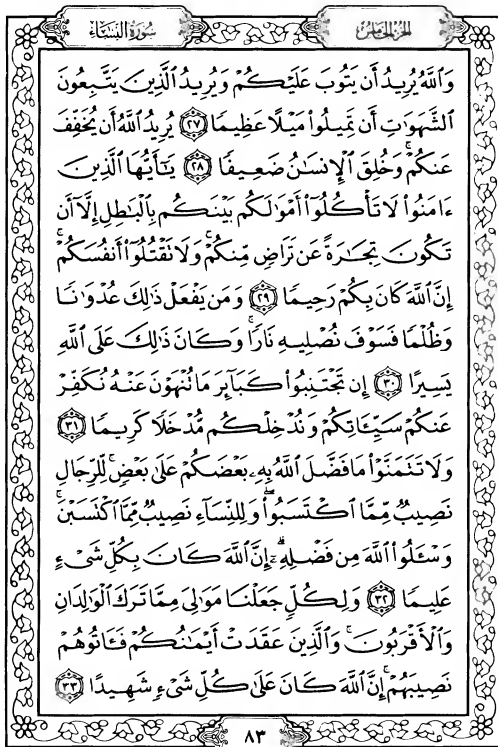 الجزء الخامس
سورة النساء
وَاللَّهُ يُرِيدُ أَن يَتُوبَ عَلَيْكُمْ وَيُرِيدُ الَّذِينَ يَتَّبِعُونَ
الشَّهَوَاتِ أَن تَمِيلُوا۟ مَيْلًا عَظِيمًا ٢٧ يُرِيدُ اللَّهُ أَن يُخَفِّفَ
عَنكُمْ ۚ وَخُلِقَ الْإِنسَٰنُ ضَعِيفًا ٢٨ يَٰٓأَيُّهَا الَّذِينَ
ءَامَنُوا۟ لَا تَأْكُلُوٓا۟ أَمْوَٰلَكُم بَيْنَكُم بِالْبَٰطِلِ إِلَّآ أَن
تَكُونَ تِجَٰرَةً عَن تَرَاضٍ مِّنكُمْ ۚ وَلَا تَقْتُلُوٓا۟ أَنفُسَكُمْ ۚ
إِنَّ اللَّهَ كَانَ بِكُمْ رَحِيمًا ٢٩ وَمَن يَفْعَلْ ذَٰلِكَ عُدْوَٰنًا
وَظُلْمًا فَسَوْفَ نُصْلِيهِ نَارًا ۚ وَكَانَ ذَٰلِكَ عَلَى اللَّهِ
يَسِيرًا ٣٠ إِن تَجْتَنِبُوا۟ كَبَآئِرَ مَا تُنْهَوْنَ عَنْهُ نُكَفِّرْ
عَنكُمْ سَيِّـَٔاتِكُمْ وَنُدْخِلْكُم مُّدْخَلًا كَرِيمًا ٣١
وَلَا تَتَمَنَّوْا۟ مَا فَضَّلَ اللَّهُ بِهِۦ بَعْضَكُمْ عَلَىٰ بَعْضٍ ۚ لِّلرِّجَالِ
نَصِيبٌ مِّمَّا اكْتَسَبُوا۟ ۖ وَلِلنِّسَآءِ نَصِيبٌ مِّمَّا اكْتَسَبْنَ ۚ
وَسْـَٔلُوا۟ اللَّهَ مِن فَضْلِهِۦٓ ۗ إِنَّ اللَّهَ كَانَ بِكُلِّ شَىْءٍ
عَلِيمًا ٣٢ وَلِكُلٍّ جَعَلْنَا مَوَٰلِىَ مِمَّا تَرَكَ الْوَٰلِدَانِ
وَالْأَقْرَبُونَ ۚ وَالَّذِينَ عَقَدَتْ أَيْمَٰنُكُمْ فَـَٔاتُوهُمْ
نَصِيبَهُمْ ۚ إِنَّ اللَّهَ كَانَ عَلَىٰ كُلِّ شَىْءٍ شَهِيدًا ٣٣
٨٣